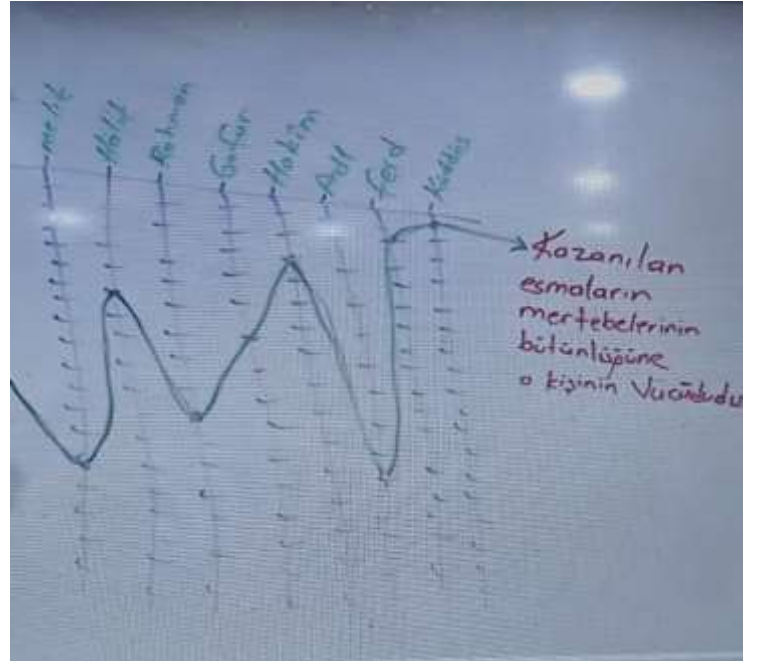 Melik
Halik
Rahman
Gafur
Hakîm
Adl
Ferd
Kuddüs
Kazanılan
esmaların
mertebelerinin
bütünlüğüne
o kişinin Vucûdudu